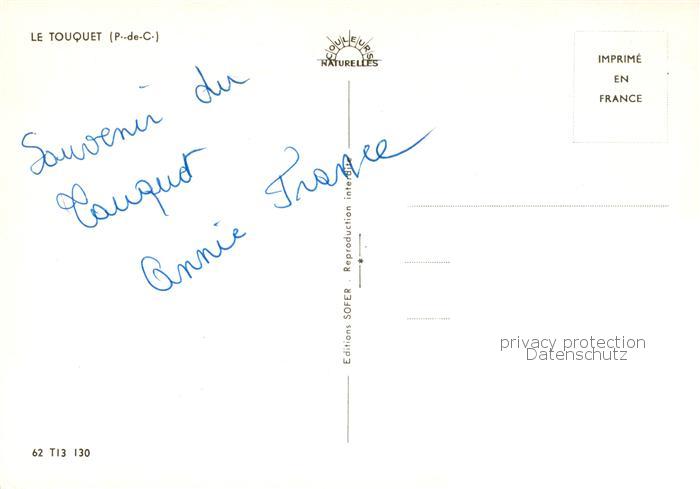 LE TOUQUET (P.-de-C.)
COULEURS
NATURELLES
IMPRIMÉ
EN
FRANCE
Souvenir du
Touquet
Annie France
Editions SOFER . Reproduction interdite
privacy protection
Datenschutz
62 T13 130